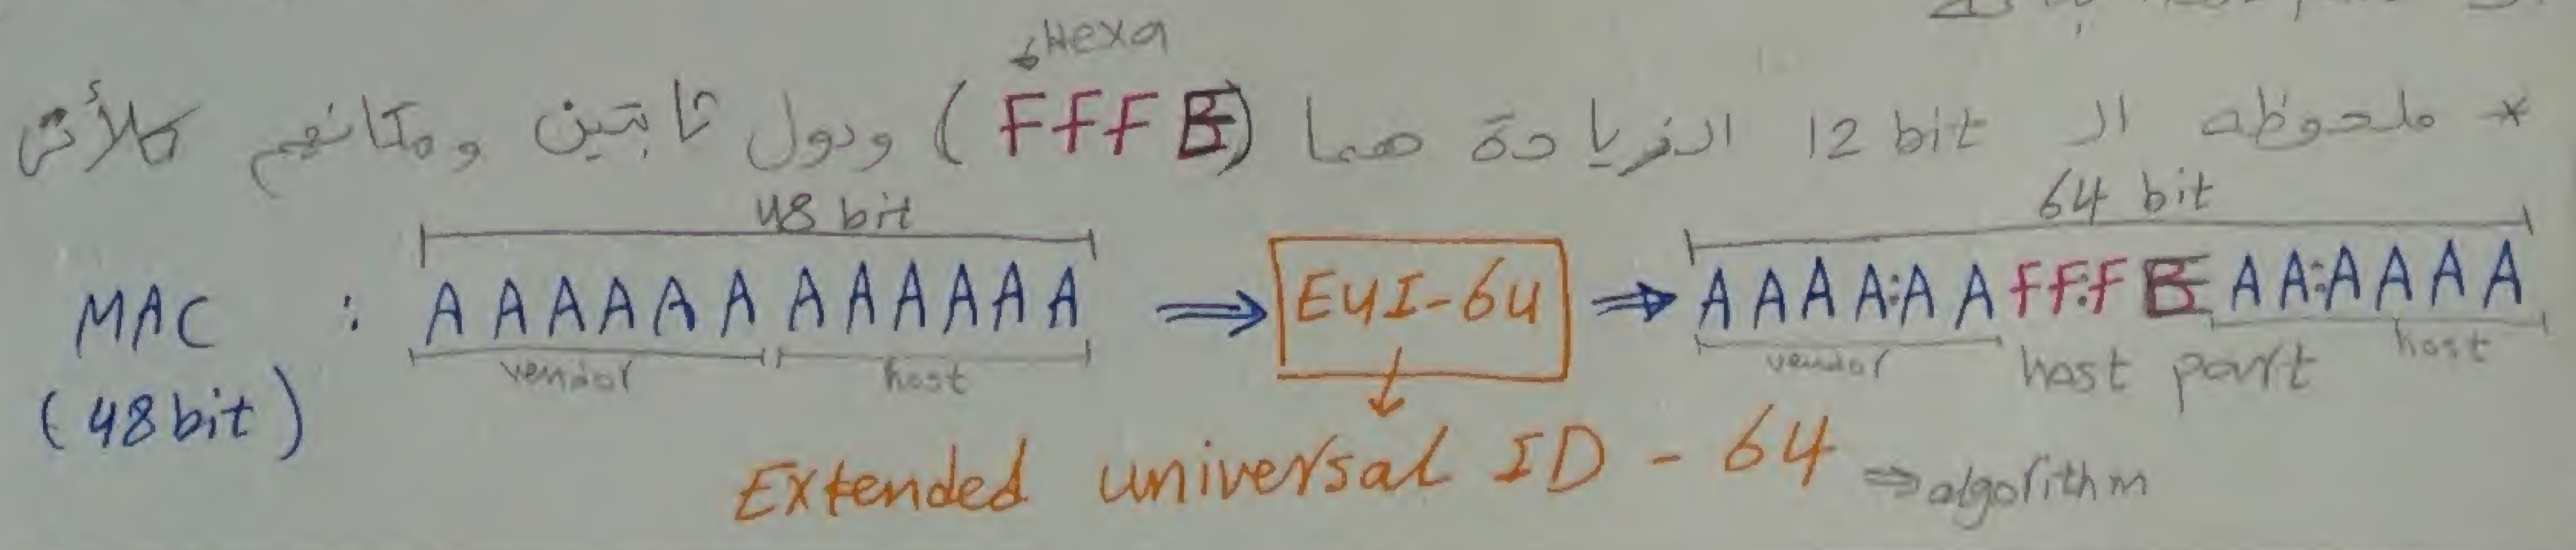 Hexa
* ملحوظه ال 12 bit الزيادة هما (FFFE) ودول ثابتين ومكانهم كالأتى
48 bit
64 bit
MAC : A A A A A A A A A A A A ⇒ EUI-64 ⇒ A A A A:A A FF:F E A A:A A A A
vendor host vendor host part host
(48 bit)
Extended universal ID - 64 ⇒ algorithm